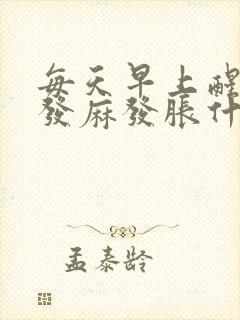 每天早上醒
發麻發脹什
孟泰龄